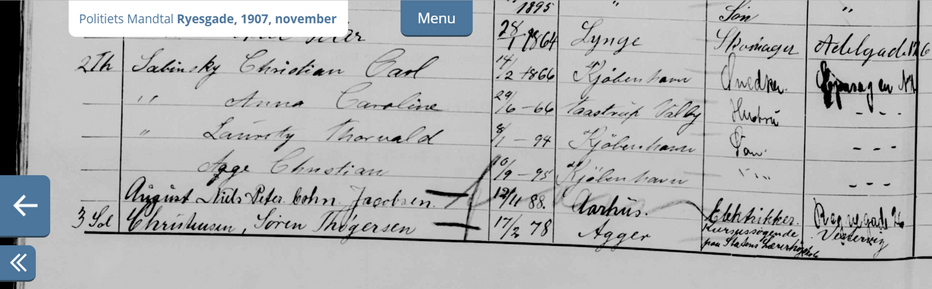 Politiets Mandtal Ryesgade, 1907, november
Menu
1895 " Søn "
28/1 1864 Lynge Skomager Adelgade 126
2 Th Sabinsky Christian Carl 14/2 1866 Kjøbenhavn Snedker
" Anna Caroline 29/6 - 66 Taastrup Valby Hustru - - -
" Lauritz Thorvald 8/1 - 94 Kjøbenhavn Søn - - -
Aage Christian 10/9 - 95 Kjøbenhavn " - - -
August Niels Peter Cohn Jacobsen 12/11 88. Aarhus. Elektriker.
3 Sal Christensen, Søren Thøgersen 17/2 78 Agger Kursussøgende Vestervig
fra Statens